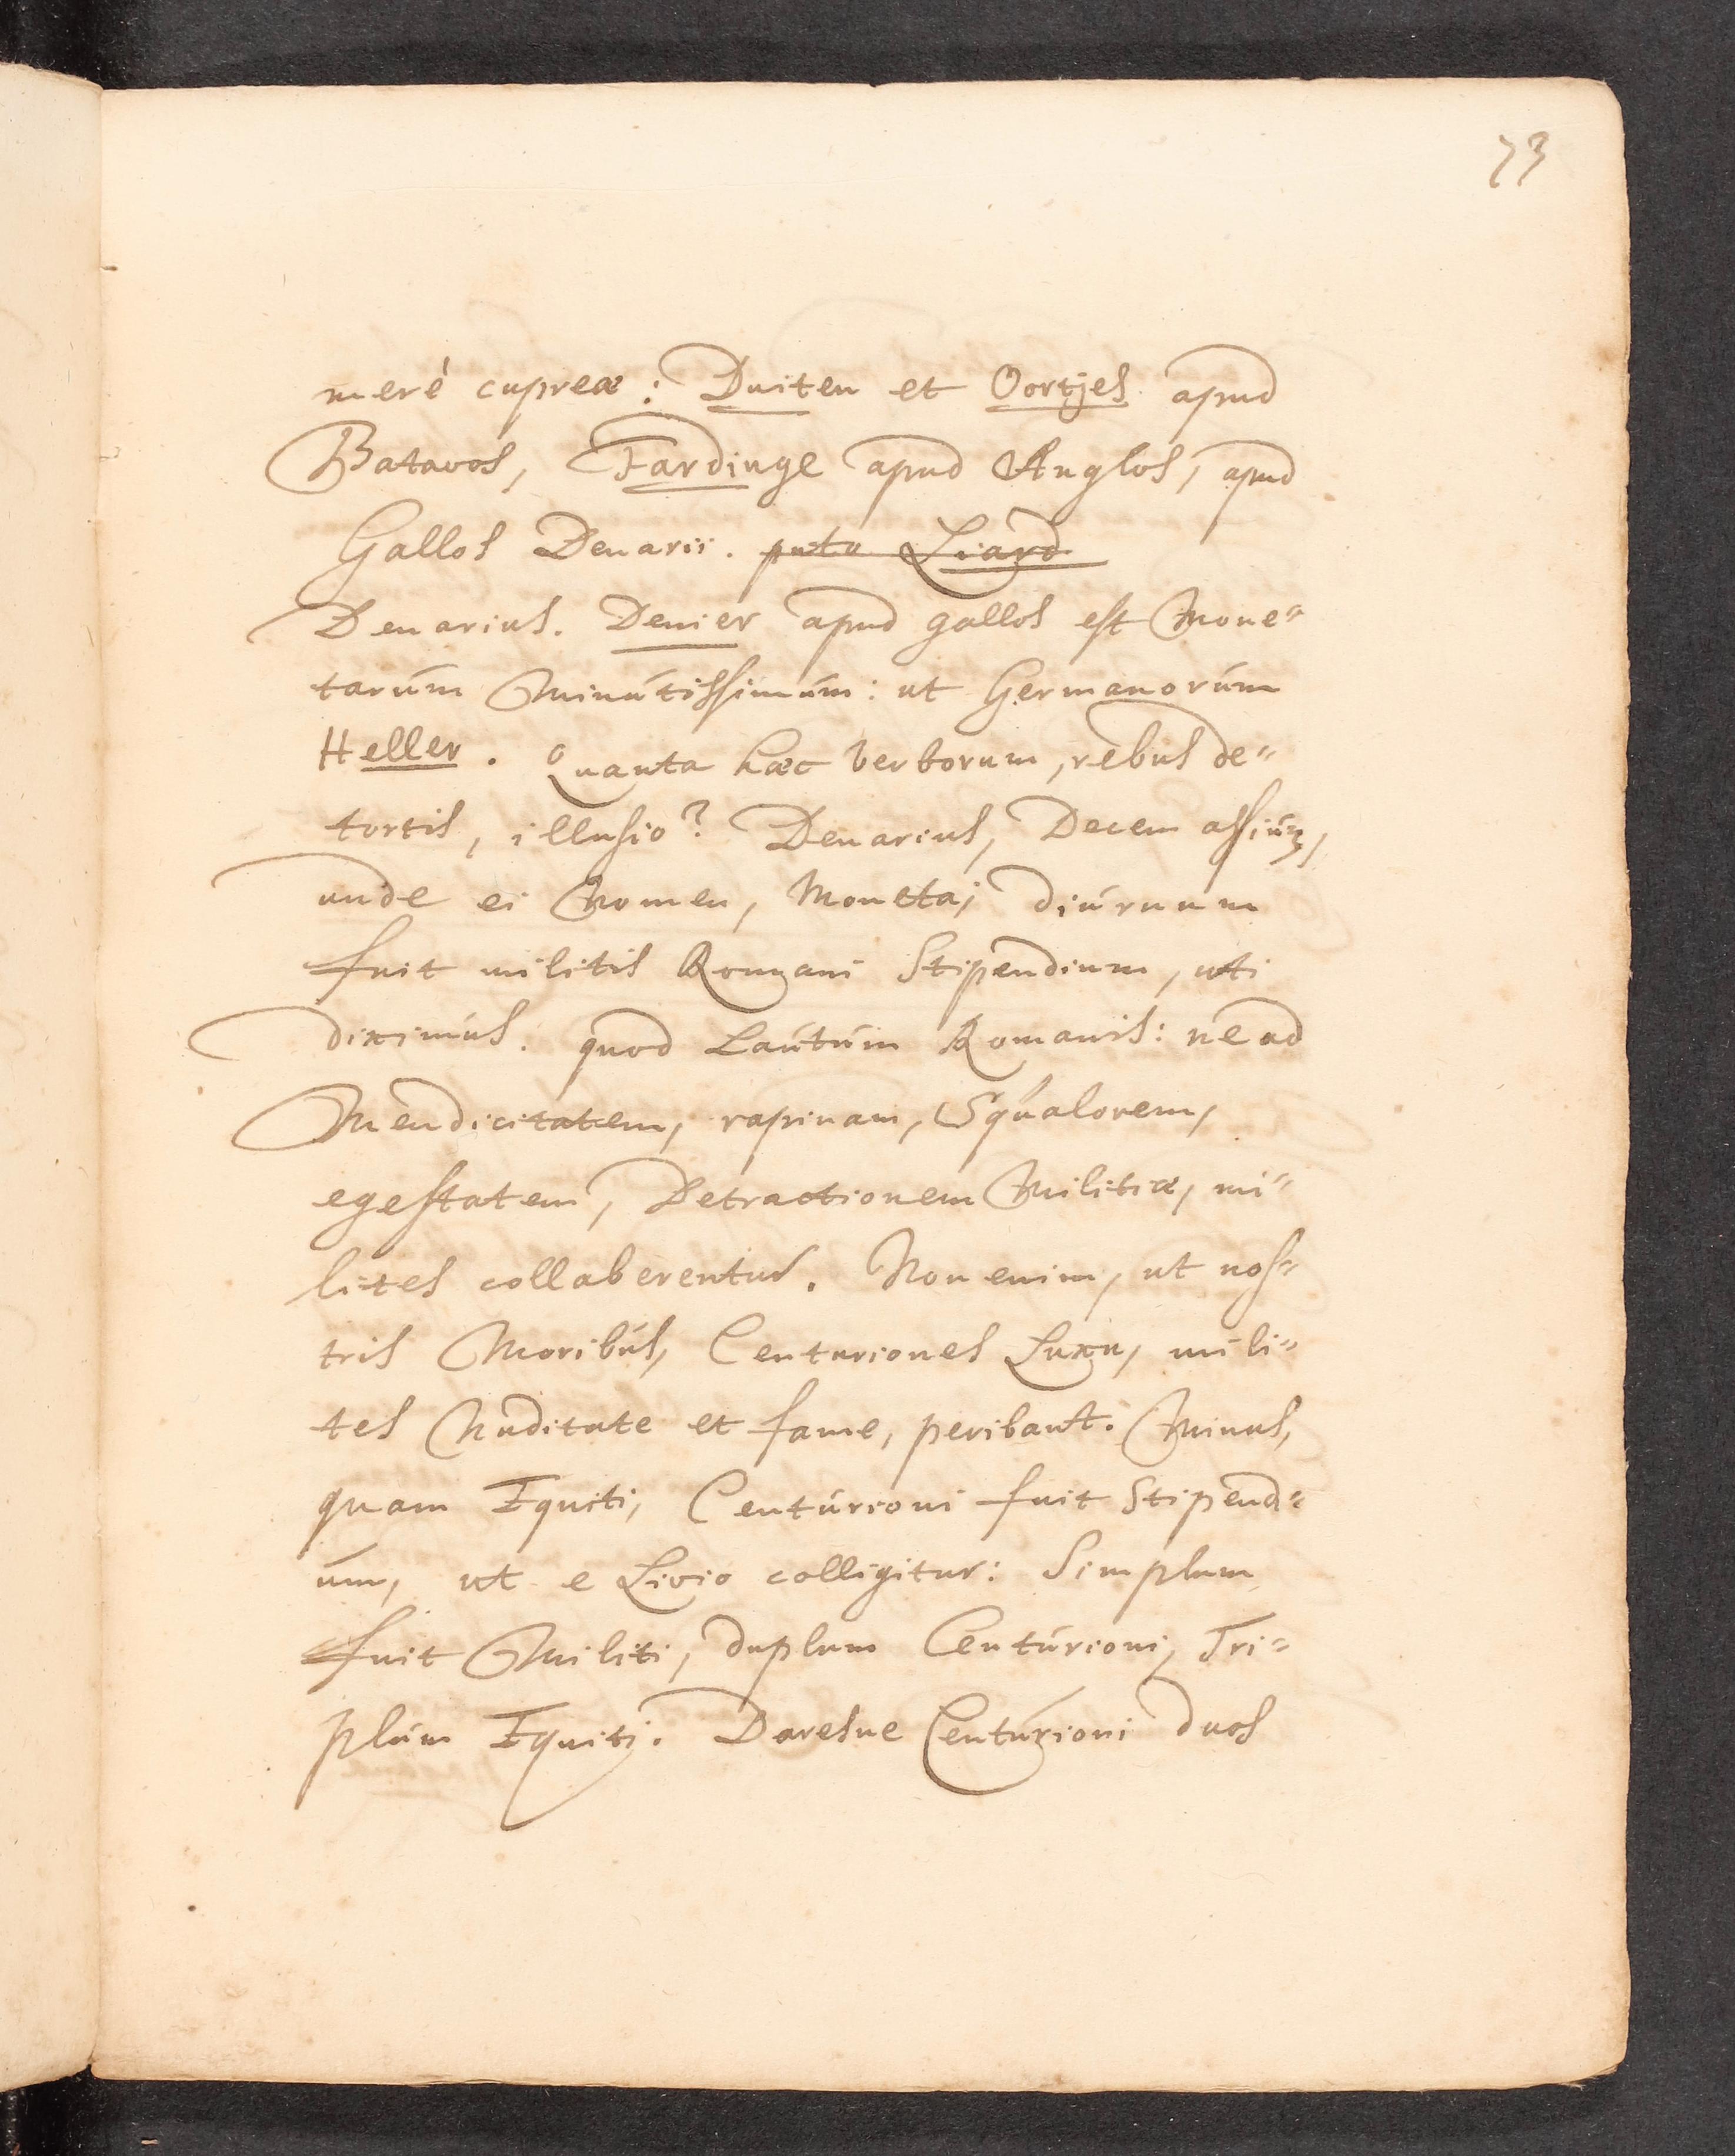 73
merè cupreæ: Duiten et Oortjes apud
Batavos, Fardinge apud Anglos, apud
Gallos Denarii. puta Liard
Denarius. Denier apud gallos est Mone=
tarúm Minútissimúm: ut Germanorúm
Heller. Quanta hæc verborum, rebus de=
tortis, illusio? Denarius, Decem assiúm,
unde ei Nomen, Moneta; diúrnum
fuit militis Romani Stipendium, uti
diximús. quod Laútúm Romanis: ne ad
Mendicitatem, rapinam, Squalorem,
egestatem, Detractionem Militiæ, mi=
lites collaberentur. Non enim, ut nos=
tris Moribús, Centuriones Luxu, mili=
tes Nuditate et fame, peribant. Minus,
quam Equiti, Centúrioni fuit Stipendi=
úm, ut e Livio colligitur: Simplum
fuit Militi, duplum Centúrioni, Tri=
plúm Equiti. Daresne Centúrioni duos